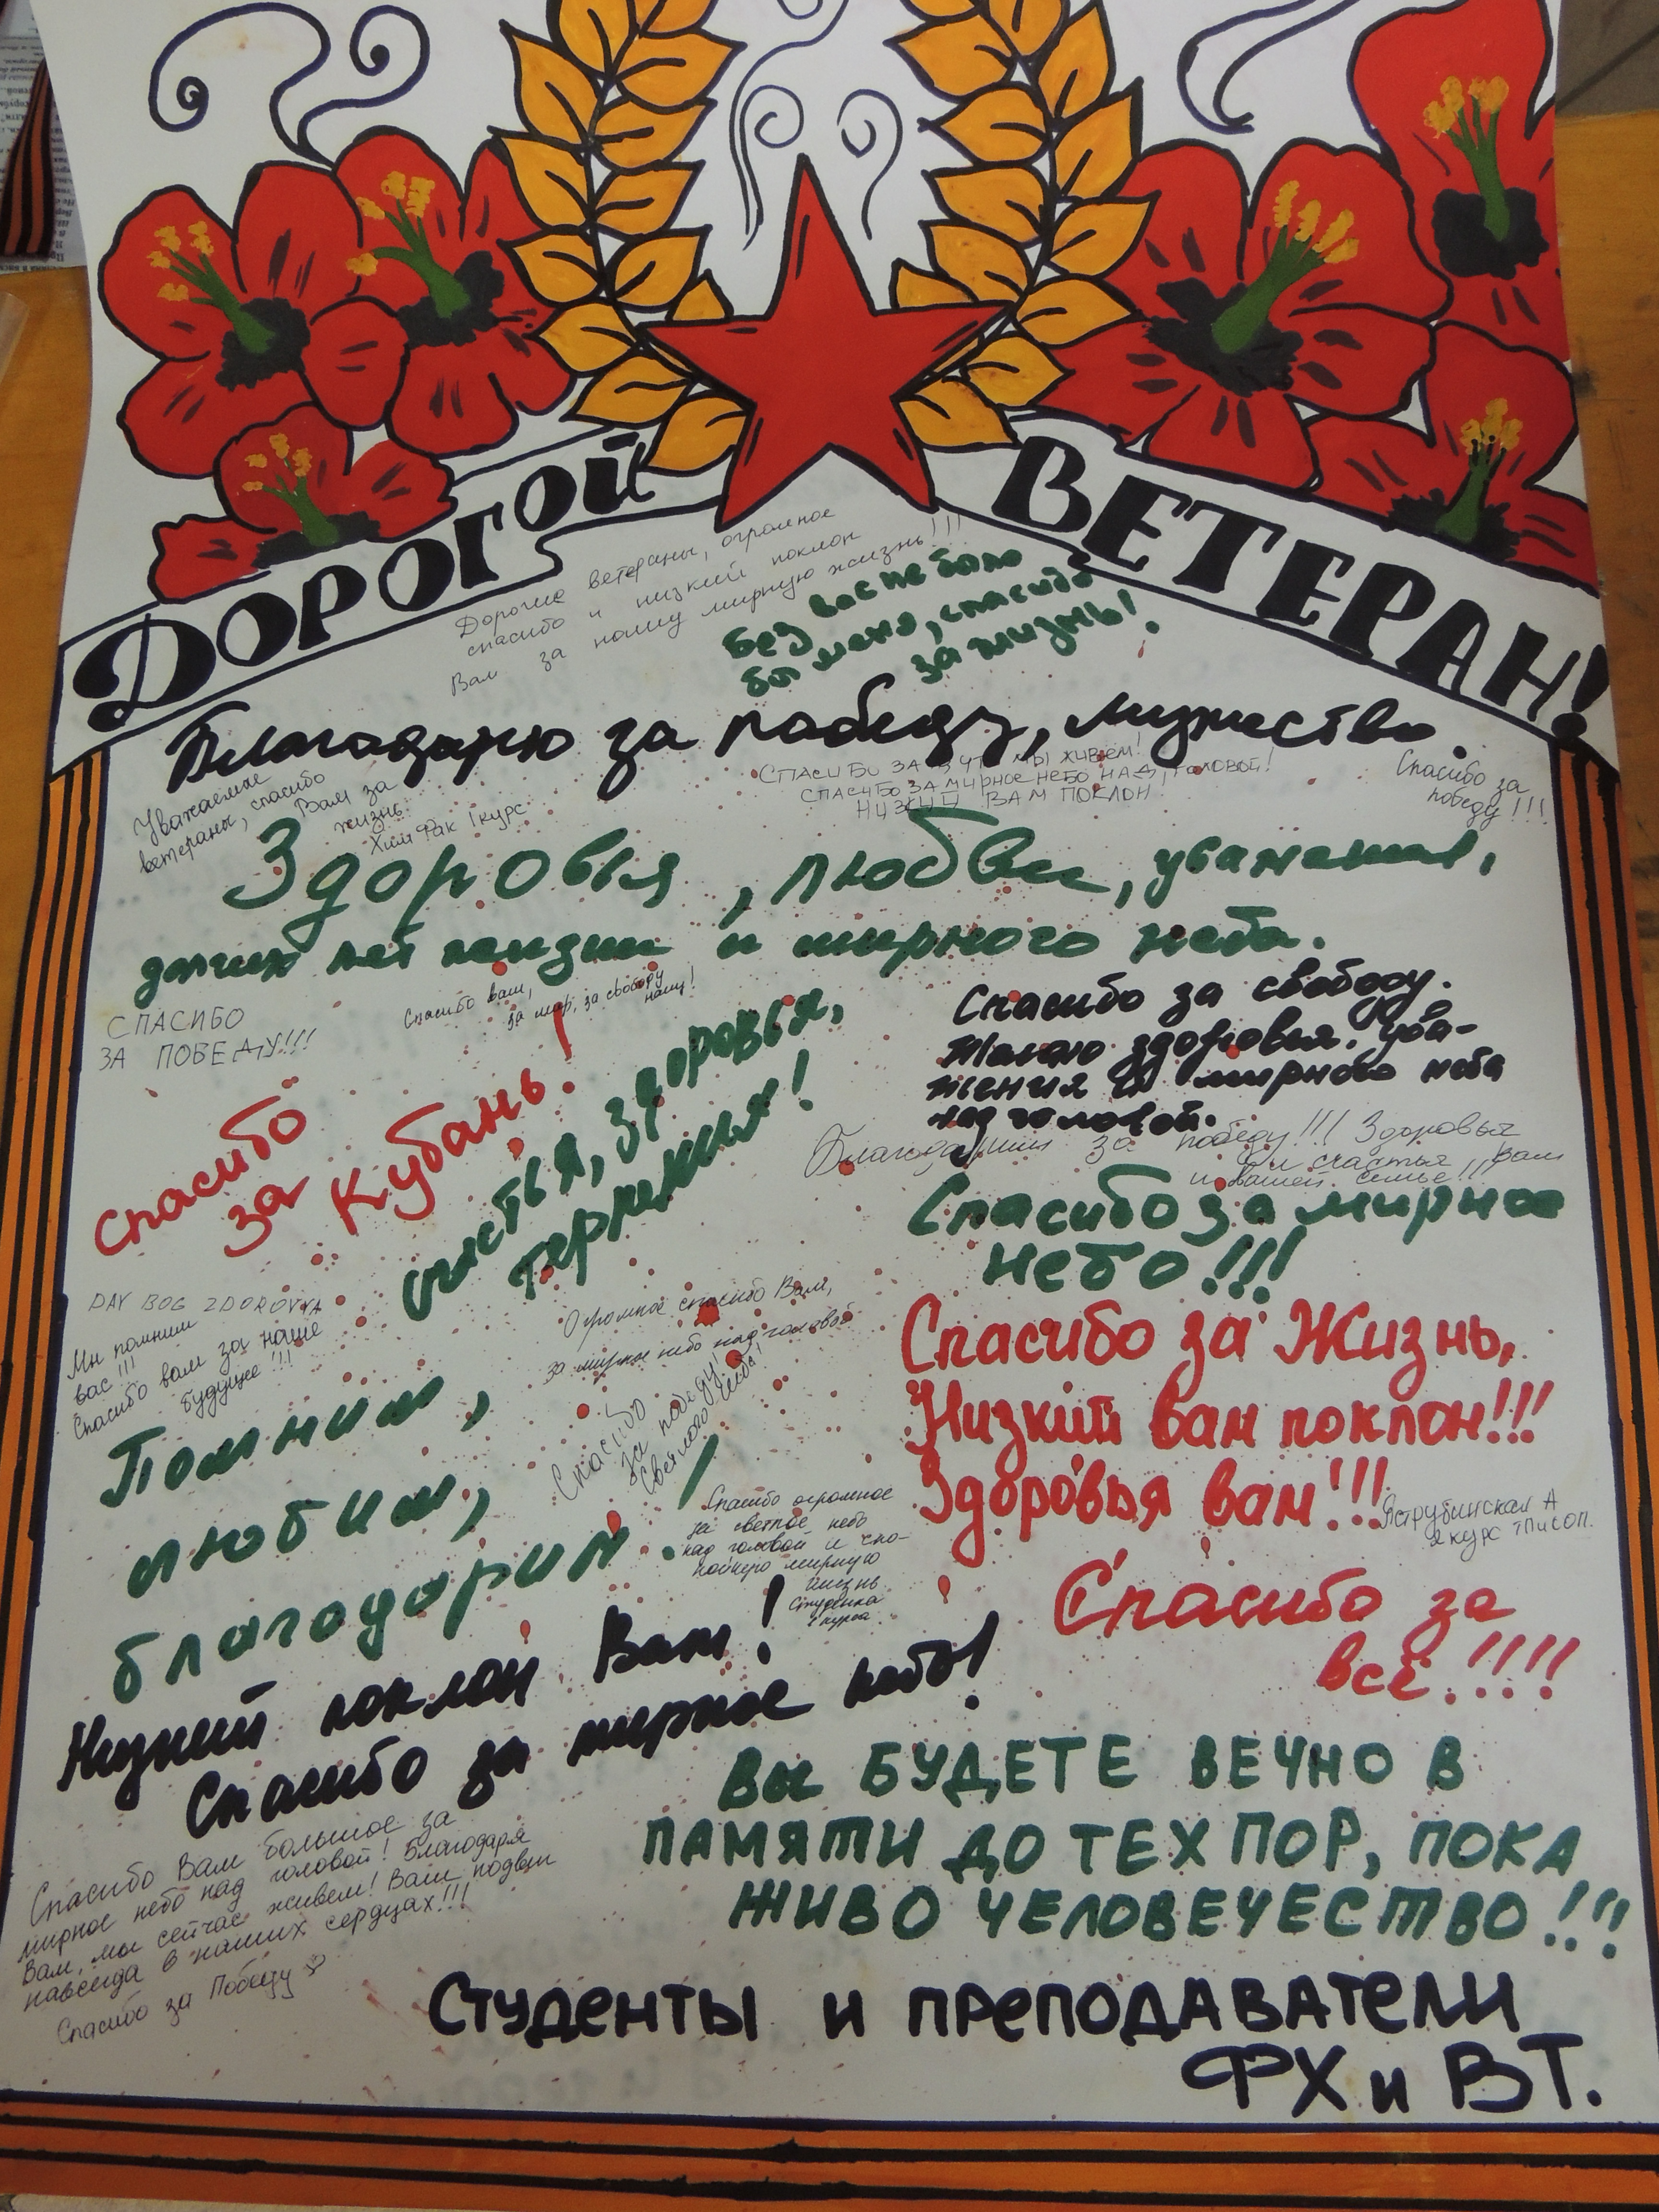 ДОРОГОЙ ВЕТЕРАН!
Дорогие ветераны, огромное
спасибо и низкий поклон
Вам за нашу мирную жизнь!!!
Без вас не было
бы меня, спасибо
за жизнь!
Благадарю за победу, мужество.
Уважаемые
ветераны, спасибо
Вам за
жизнь
Хим Фак 1 курс
СПАСИБО ЗА ТО, ЧТО МЫ ЖИВЁМ!
СПАСИБО ЗА МИРНОЕ НЕБО НАД ГОЛОВОЙ!
НИЗКИЙ ВАМ ПОКЛОН!
Спасибо за
победу!!!
Здоровья, любви, уважения,
долгих лет жизни и мирного неба.
СПАСИБО
ЗА ПОБЕДУ!!!
Спасибо вам,
за мир, за свободу
нашу!
Спасибо за свободу.
Желаю здоровья, ува-
жения и мирного неба
над головой.
спасибо
за
Кубань!
счастья, здоровья,
терпения!
Благодарим за победу!!! Здоровья
и счастья Вам
и вашей семье!!!
Спасибо за мирное
небо!!!
DAY BOG ZDOROVYA
Мы помним
вас!!!
Спасибо вам за наше
будущее!!!
Огромное спасибо Вам,
за мирное небо над головой
Спасибо
за победу!
Светлого неба!
Спасибо за Жизнь,
Низкий вам поклон!!!
Здоровья вам!!!
Яструбинская А
2 курс ТПиСОП.
Помним,
любим,
благодорим!
Спасибо огромное
за светлое небо
над головой и спо-
койную мирную
жизнь
Студентка
1 курса.
Спасибо за
всё!!!!
Низкий поклон Вам!
Спасибо за мирное небо!
Спасибо Вам большое за
мирное небо над головой! Благодаря
Вам, мы сейчас живем! Ваш подвиг
навсегда в наших сердцах!!!
Спасибо за Победу
ВЫ БУДЕТЕ ВЕЧНО В
ПАМЯТИ ДО ТЕХ ПОР, ПОКА
ЖИВО ЧЕЛОВЕЧЕСТВО!!!
СТУДЕНТЫ И ПРЕПОДАВАТЕЛИ
ФХ и ВТ.